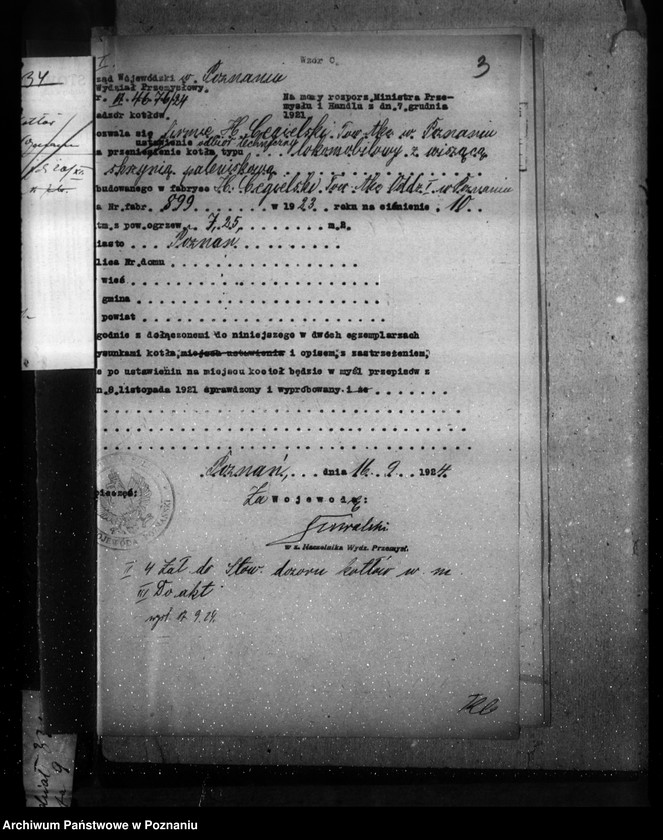 Wzór C.
3
I.
ząd Wojewódzki w. Poznaniu
Wydział Przemysłowy.
r. IX. 4676/24
Na mocy rozporz. Ministra Prze-
mysłu i Handlu z dn. 7. grudnia
1921.
adzór kotłów.
ozwala się firmie H. Cegielski. Tow. Akc. w. Poznaniu
ustawienie odbiór techniczny
a przeniesienie kotła typu lokomobilowy z wiszącą
skrzynią paleniskową
budowanego w fabryce H. Cegielski. Tow. Akc. Oddz. I w Poznaniu
a Nr. fabr. 899 w 1923 roku na ciśnienie 10
tm. z pow. ogrzew. 7,25 m.2.
iasto Poznań
lica Nr. domu
wieś
gmina
powiat
godnie z dołączonemi do niniejszego w dwóch egzemplarzach
ysunkami kotła, miejsca ustawienia i opisem, z zastrzeżeniem,
e po ustawieniu na miejscu kocioł będzie w myśl przepisów z
n. 8. listopada 1921 sprawdzony i wypróbowany i że
Poznań, dnia 16. 9. 1924.
ieczęć:
Za Wojewodę:
w z. Naczelnika Wydz. Przemysł.
II 4 Zał. do Stow. dozoru kotłów w. m.
III Do akt
9
Archiwum Państwowe w Poznaniu